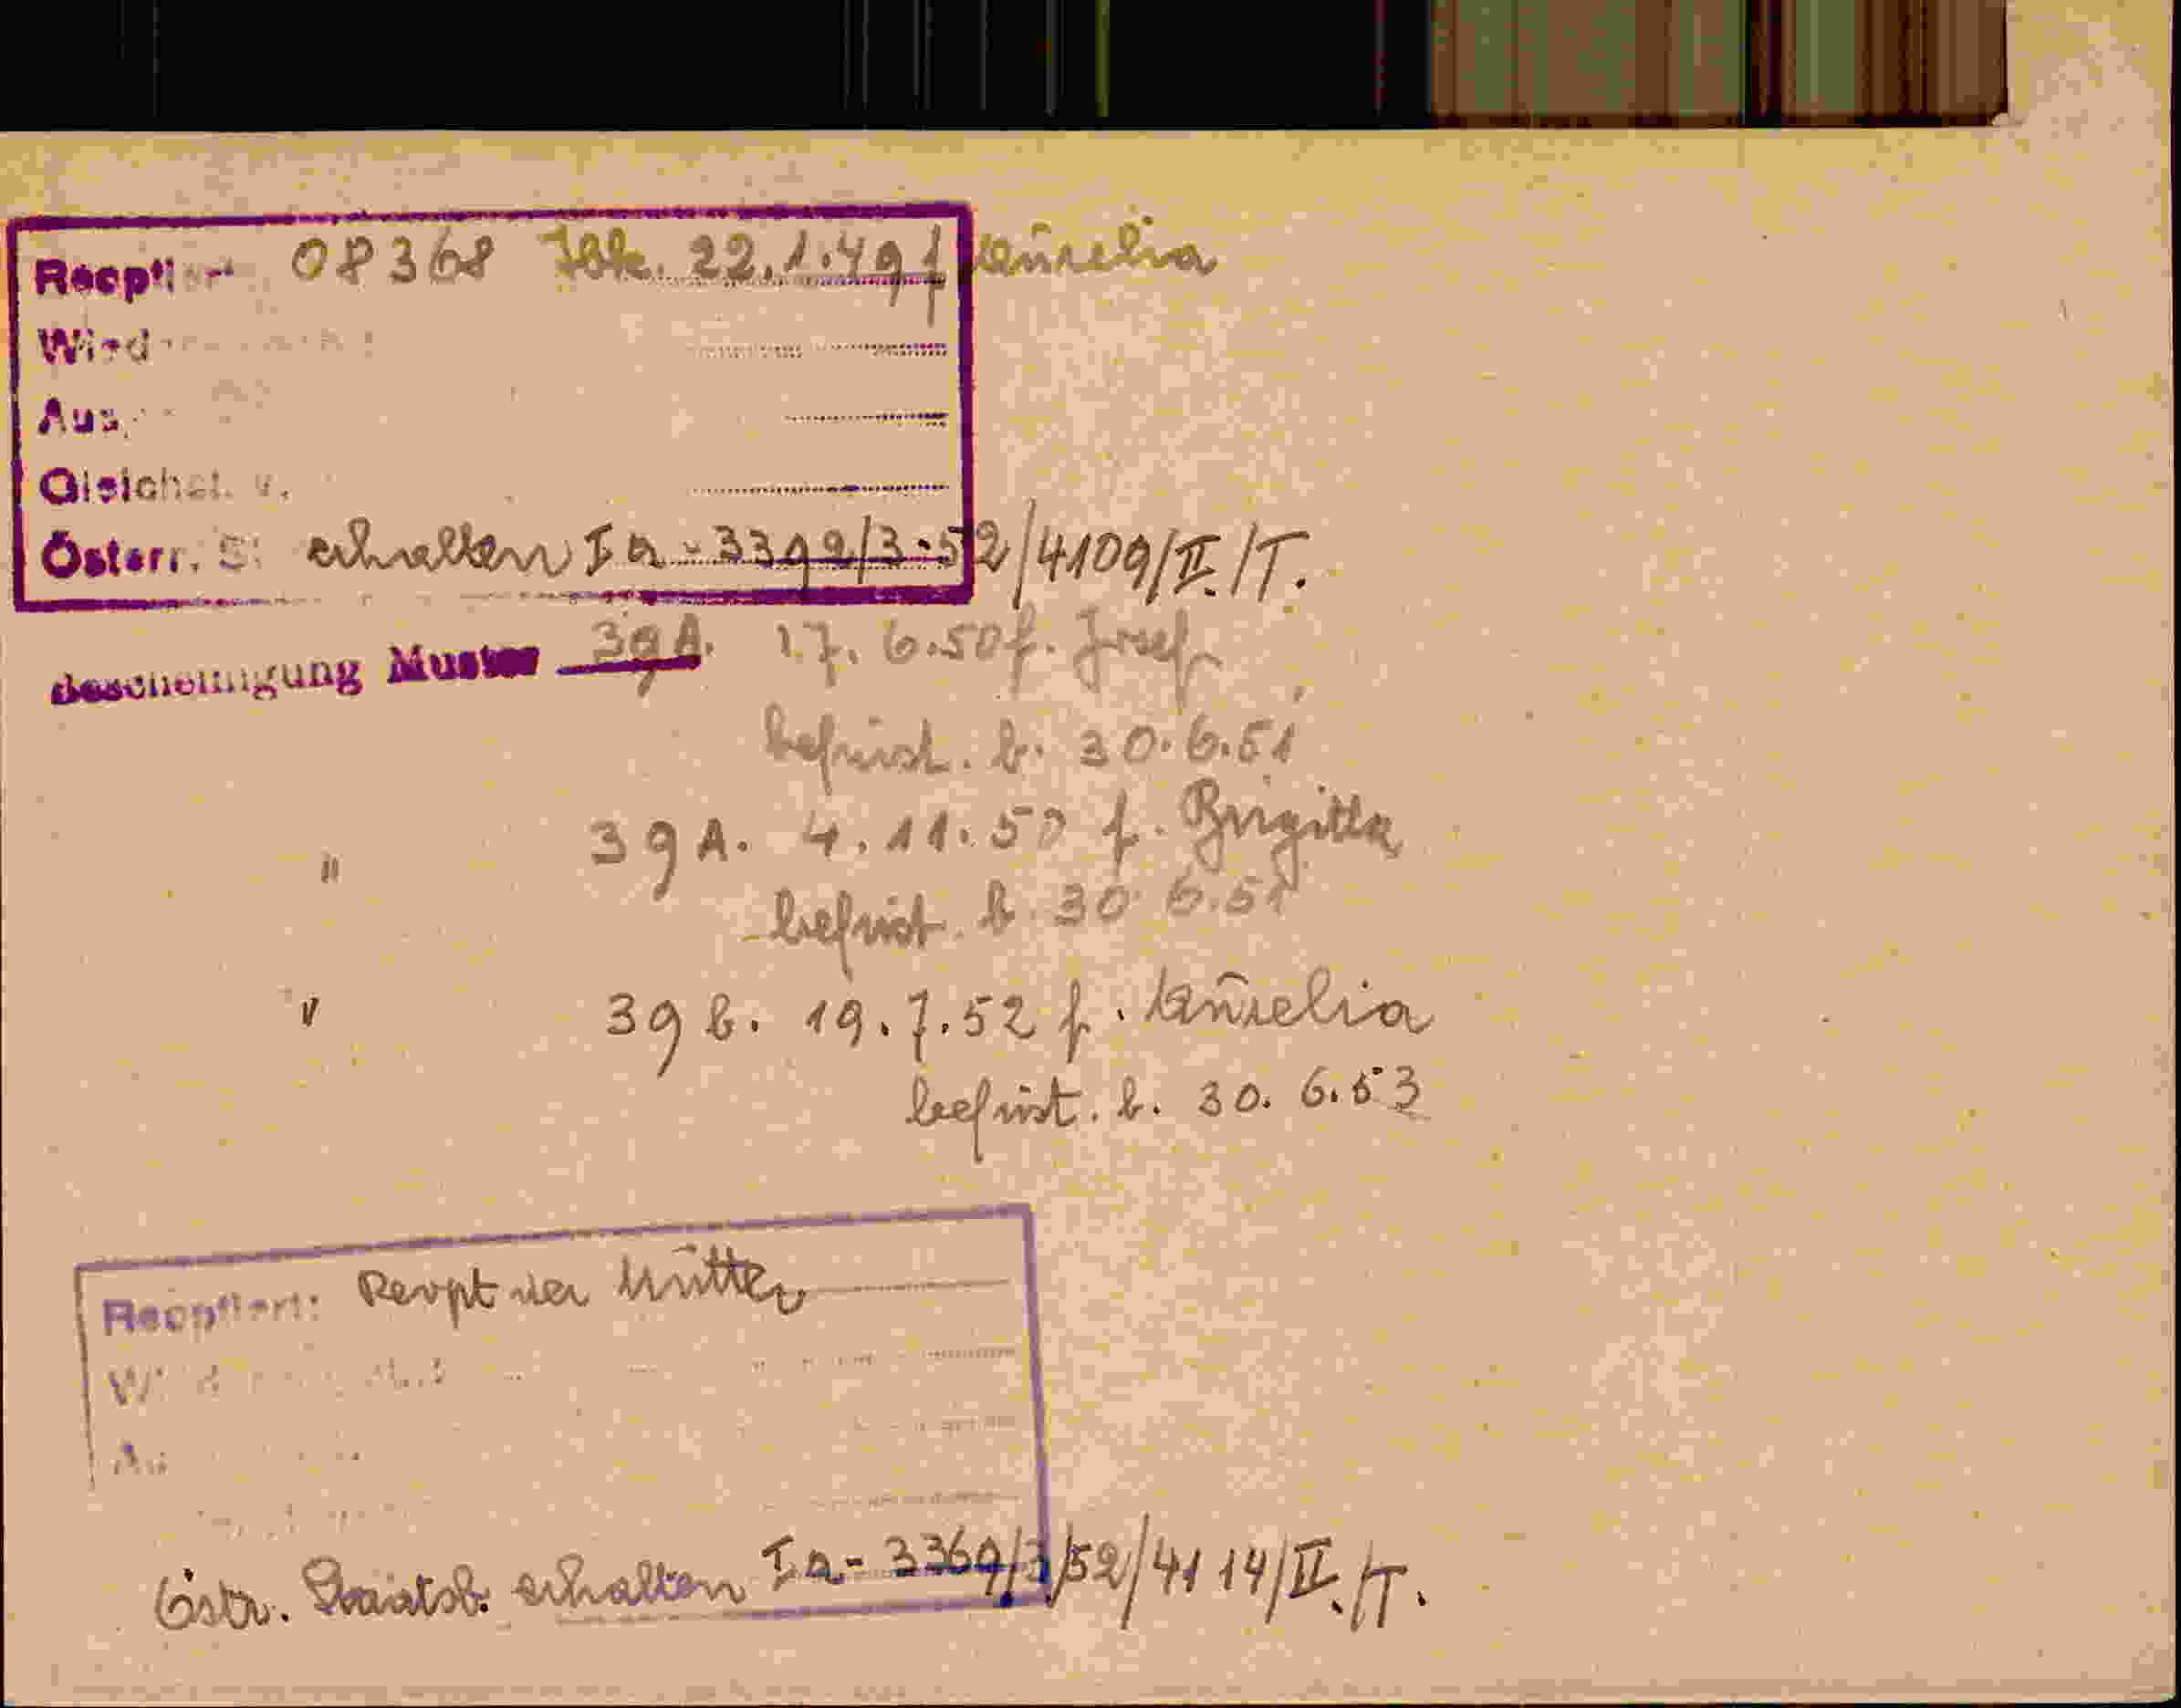 Reoptiert 08368 Ibk. 22.1.49 f. Aurelia
Wied
Aus
Gleichst. v.
Österr. St erhalten Ia-3392/3-52/4109/II./T.
Bescheinigung Muster 39A. 17. 6.50 f. Josef
befrist. b. 30.6.51
" 39A. 4.11.50 f. Brigitta
befrist. b. 30.6.51
" 39b. 19.7.52 f. Aurelia
befrist. b. 30. 6.53
Reoptiert: Reopt der Mutter
W
Au
Östr. Staatsb. erhalten Ia-3369/3/52/4114/II./T.